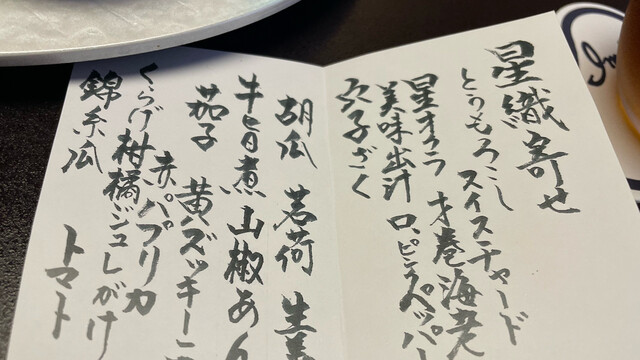 星織寄せ
とうもろこし スイスチャード
星オクラ 才巻海老
美味出汁 ロ、ピンクペッパー
穴子ざく
胡瓜 茗荷 生姜
牛旨煮、山椒あん
茄子 黄ズッキーニ
赤パプリカ
くらげ 柑橘ジュレがけ
錦糸瓜 トマト